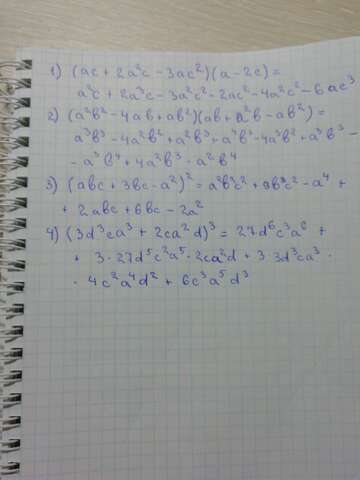 1) (ac + 2a²c - 3ac²)(a - 2c) =
a²c + 2a³c - 3a²c² - 2ac² - 4a²c² - 6ac³
2) (a²b² - 4ab + ab²)(ab + a²b - ab²) =
a³b³ - 4a²b² + a²b³ + a⁴b³ - 4a³b² + a³b³ -
- a³b⁴ + 4a²b³ - a²b⁴
3) (abc + 3bc - a²)² = a²b²c² + 9b²c² - a⁴ +
+ 2abc + 6bc - 2a²
4) (3d³ca³ + 2ca²d)³ = 27d⁶c³a⁶ +
+ 3·27d⁵c²a⁵·2ca²d + 3·3d³ca³·
· 4c²a⁴d² + 6c³a⁵d³